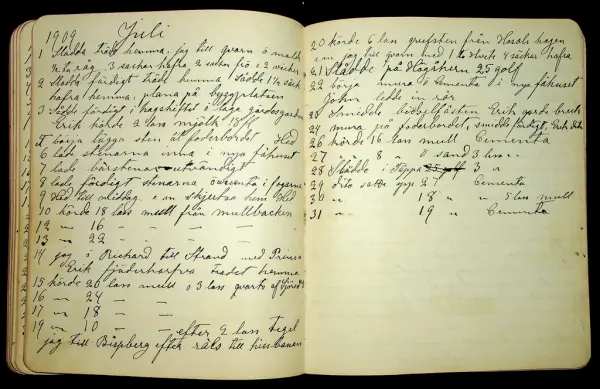 1909 Juli
1 Sladda träd hemma, jag till qvarn ö malde
½ ta råg, 3 säckar hafra, 2 säckar frö o 2 wicker
2 Sladda färdigt träd hemma, Sådde 1½ säck
hafra hemma, plana på byggplatsen
3 Sådde färdigt i hagshiftet ö laga gärdesgården
Erik körde 2 lass mjölk
5 började lägga sten åt foderbordet
6 lade stenarna inna i nya fähuset
7 lade bärstenar utvändigt
8 lade färdigt stenarna o cementa i fogarna
9 Slöd till middag, e m skjertaa hem Slöd
10 körde 18 lass mull från mullbacken
12 " 16 — — —
13 " 22 — — —
14 jag ö Richard till Strand med Prinsa
Erik fjäderharfva trädet hemma
15 körde 20 lass mull o 3 lass qvarts af
16 " 24 — —
17 " 18 — —
19 " 10 — — efter 2 lass tegel
jag till Bispberg efter räls till hissbanan
20 körde 6 lass grufsten från hagen
em jag till qvarn med 1 ta hvete 4 säckar hafra
21 Slådde på Hagåkern 25 golf
22 börja mura o cementa i nya fähuset
John ledde in rör
23 Smidde Erik
24 mura på foderbordet, smidde färdigt, Erik
26 körde 16 lass mull Cementa
27 " 8 " o sand 3 lass "
28 Slådde i Täppa 3 "
29 Dito satte upp 27 Cementa
30 " 18 " " 5 lass mull
31 " 19 " Cementa